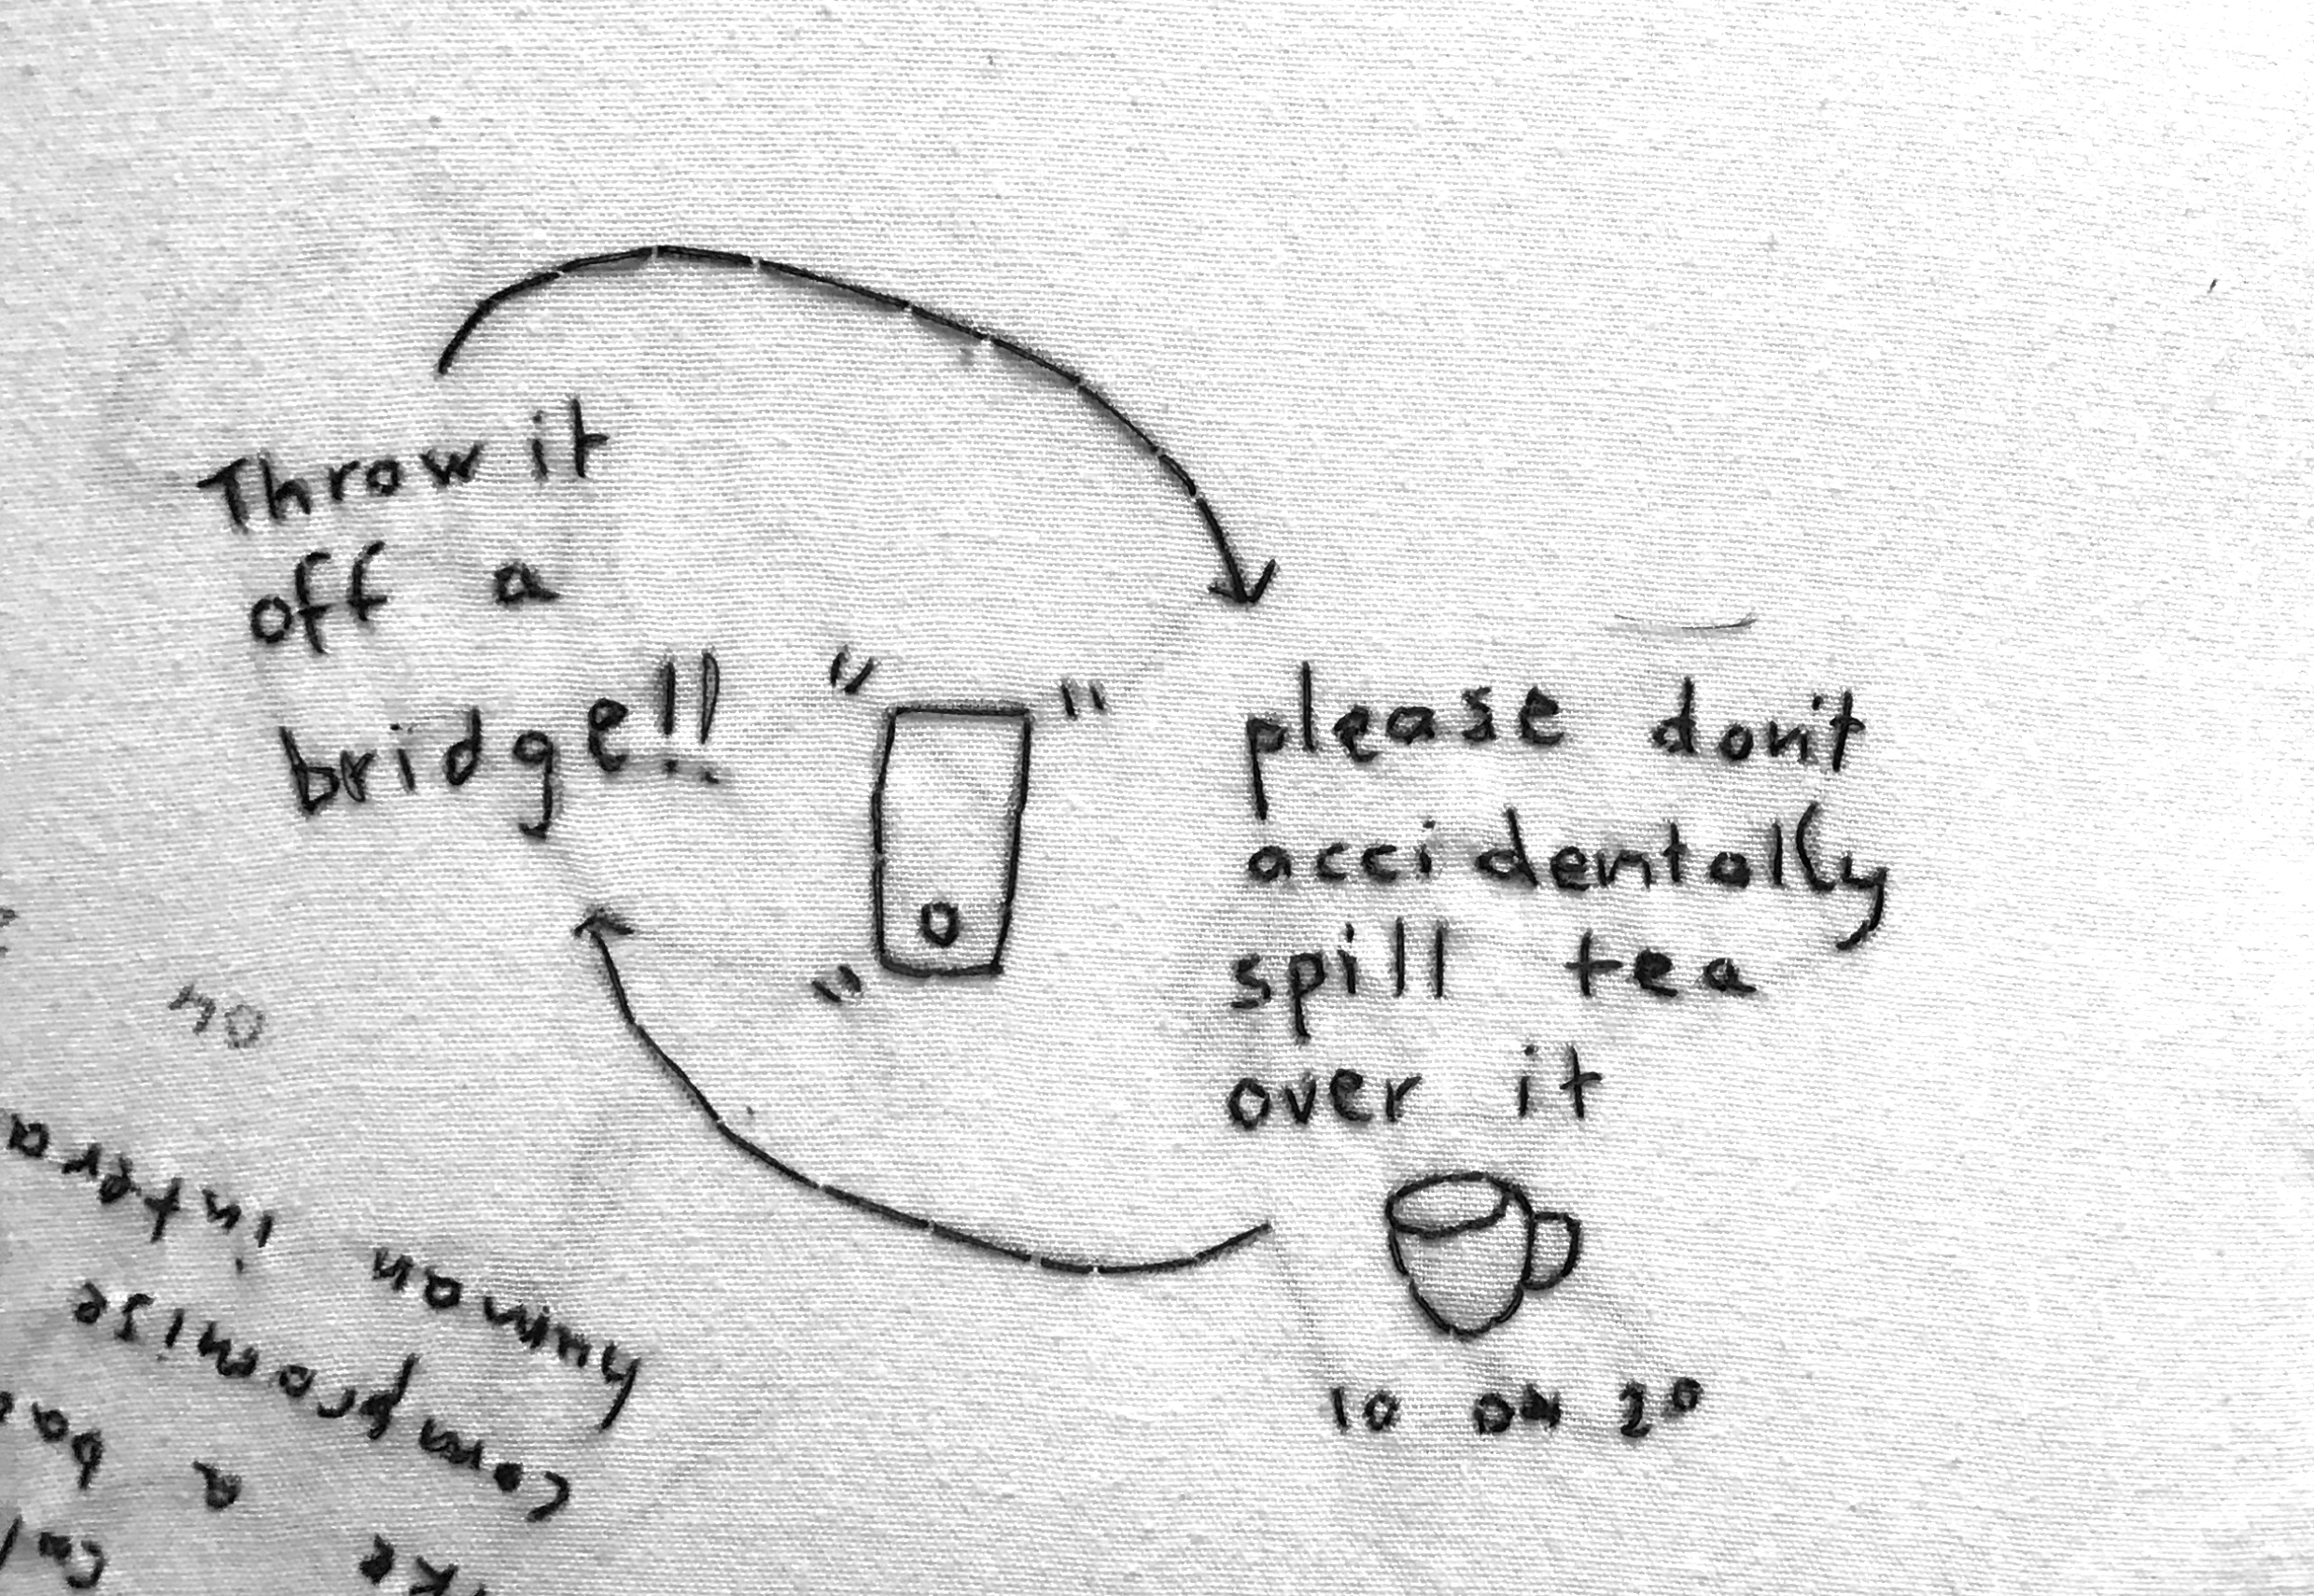 Throw it
off a
bridge!!
please don't
accidentally
spill tea
over it
10 04 20
human intera
compromise
a